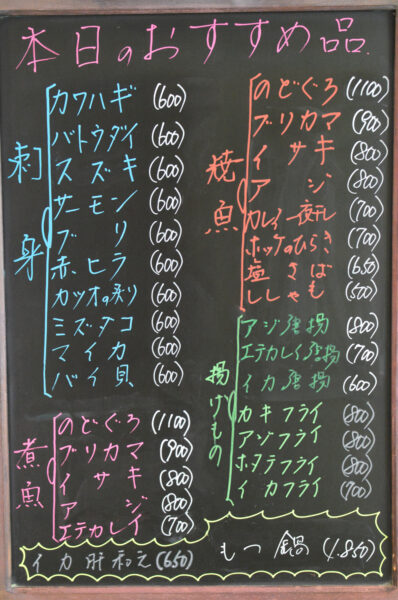 本日のおすすめ品
刺身
カワハギ (600)
バトウダイ (600)
スズキ (600)
サーモン (600)
ブリ (600)
赤ヒラ (600)
カツオの刺り (600)
ミズダコ (600)
マイカ (600)
バイ貝 (600)
煮魚
のどぐろ (1100)
ブリカマ (900)
イサキ (800)
アジ (800)
エテカレイ (700)
焼魚
のどぐろ (1100)
ブリカマ (900)
イサキ (800)
アジ (800)
カレイ一夜干し (700)
ホッケのひらき (700)
塩さば (650)
ししゃも (500)
揚げもの
アジ唐揚 (800)
エテカレイ唐揚 (700)
イカ唐揚 (600)
カキフライ (800)
アジフライ (800)
ホタテフライ (800)
イカフライ (700)
イカ肝和え (650)
もつ鍋 (1,850)